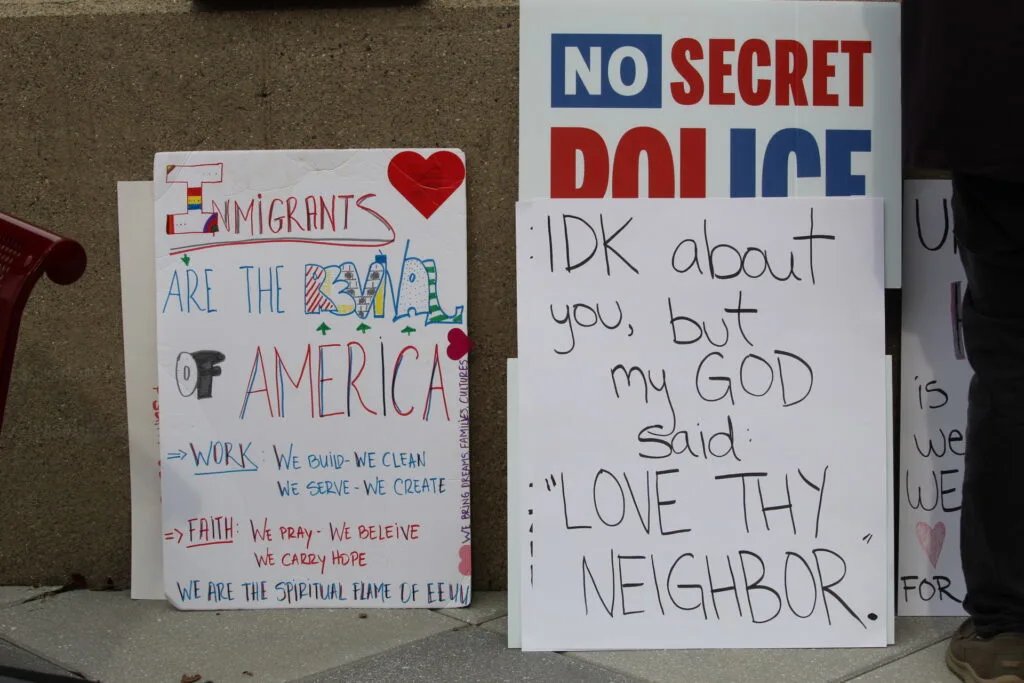 IMMIGRANTS
ARE THE REVIVAL
OF AMERICA
=> WORK: WE BUILD - WE CLEAN
WE SERVE - WE CREATE
=> FAITH: WE PRAY - WE BELEIVE
WE CARRY HOPE
WE ARE THE SPIRITUAL FLAME OF EEUU
WE BRING DREAMS, FAMILIES, CULTURES
NO SECRET
POLICE
IDK about
you, but
my GOD
said:
"LOVE THY
NEIGHBOR."
is
we
WE
FOR